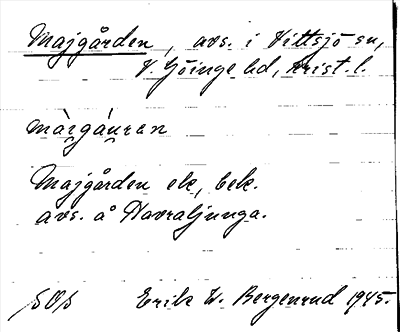 Majgården, avs. i Vittsjö sn,
V. Göinge hd, Krist. l.
Majgården ek, bek.
avs. å Havraljunga.
SOS Erik W. Bergenrud 1945.